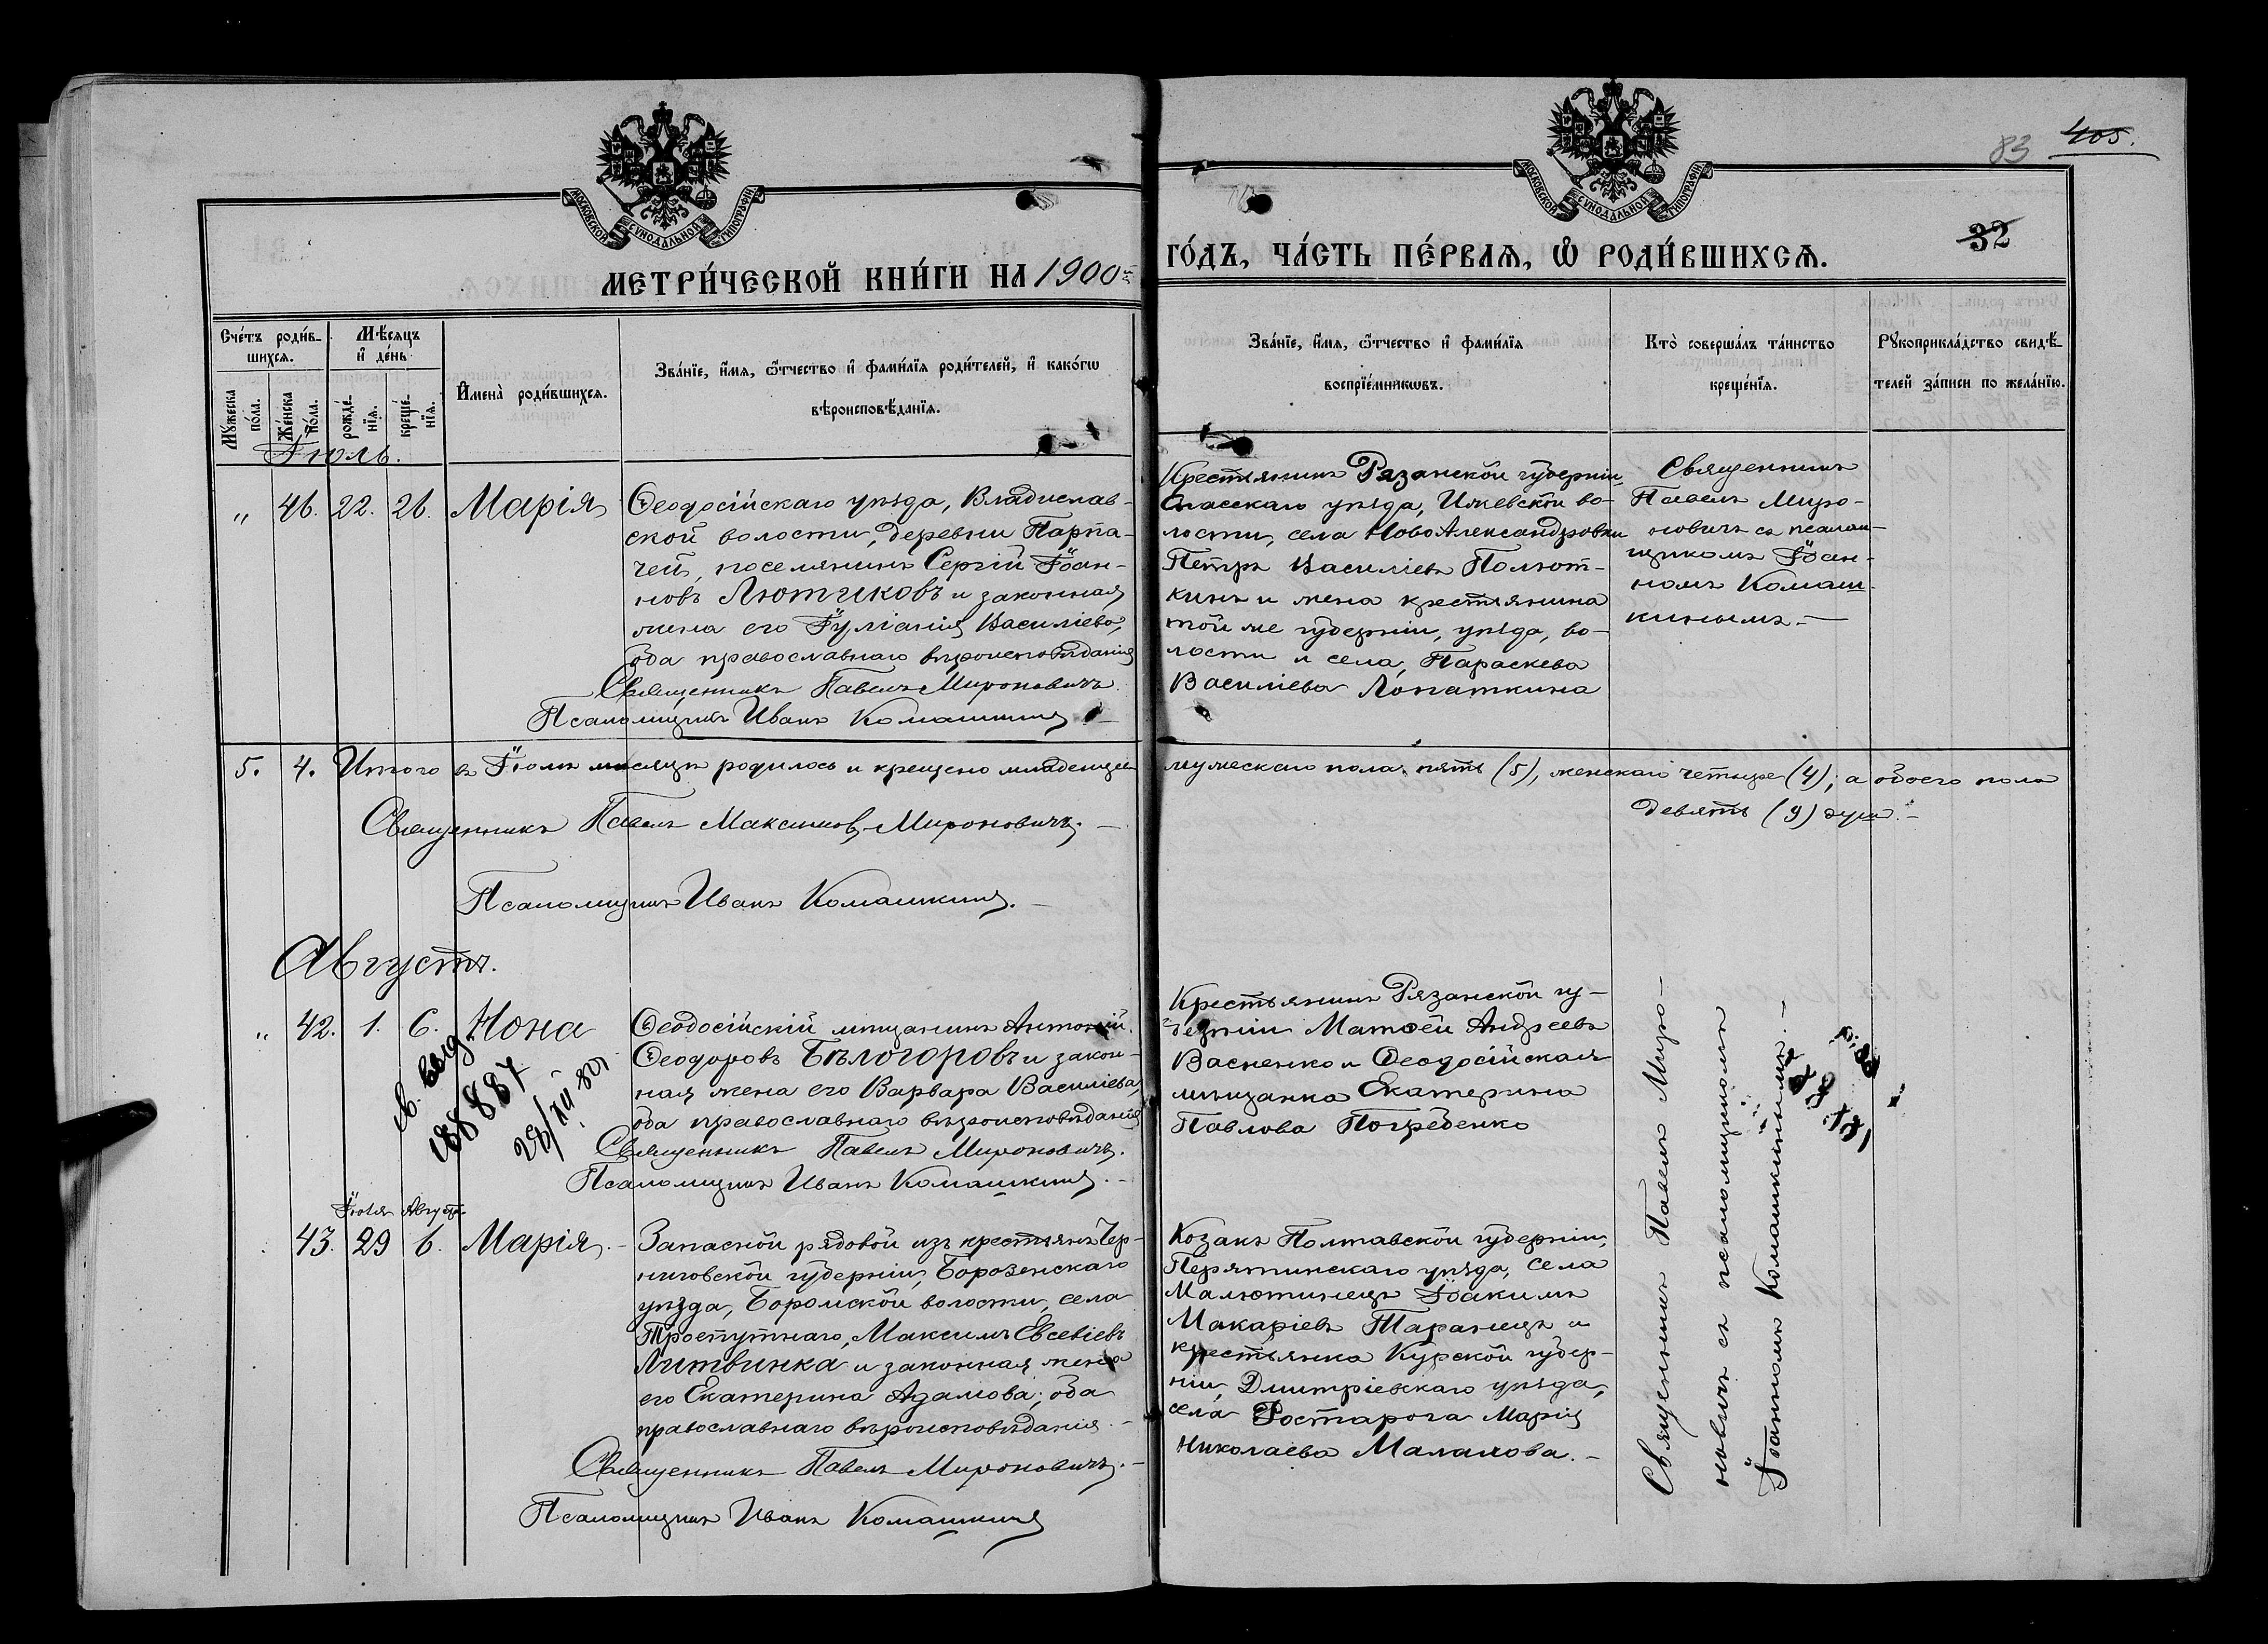 МОСКОВСКОЙ СѴНОДАЛЬНОЙ ТИПОГРАФІИ.
МОСКОВСКОЙ СѴНОДАЛЬНОЙ ТИПОГРАФІИ.
83 405.
32
МЕТРИ́ЧЕСКОЙ КНИ́ГИ НА 1900й ГО́ДЪ, ЧА́СТЬ ПЕ́РВАѦ, Ѡ҆ РОДИ́ВШИХСѦ.
Сче́тъ роди́в-
шихсѧ.
Мѣ́сѧцъ
и҆ де́нь
Мꙋ́жеска
по́ла.
Же́нска
по́ла.
рожде́-
нїѧ.
креще́-
нїѧ.
И҆мена̀ роди́вшихсѧ.
Зва́нїе, и҆́мѧ, ѻ҆́тчество и҆ фами́лїѧ роди́телей, и҆ како́гѡ
вѣроисповѣ́данїѧ.
Зва́нїе, и҆́мѧ, ѻ҆́тчество и҆ фами́лїѧ
воспрїе́мникѡвъ.
Кто̀ соверша́лъ та́инство
креще́нїѧ.
Рꙋкоприкла́дство свидѣ́-
телей за́писи по жела́нїю.
Іюль.
" 46. 22. 26. Марія
Ѳеодосійскаго уѣзда, Владислав-
ской волости, деревни Парпа-
чей, поселянинъ Сергій Іоан-
новъ Лютиковъ и законная
жена его Іуліанія Василіева,
оба православнаго вѣроисповѣданія
Священникъ Павелъ Мироновичъ.
Псаломщикъ Иванъ Комашкинъ
Крестьянинъ Рязанской губерніи
Спасскаго уѣзда, Ижевской во-
лости, села Ново Александровки
Петръ Василіевъ Полют-
кинъ и жена крестьянина
той же губерніи, уѣзда, во-
лости и села, Параскева
Василіева Лопаткина
Священникъ
Павелъ Миро-
новичъ съ псалом-
щикомъ Іоан-
номъ Комаш-
кинымъ.
5. 4. Итого въ Іюлѣ мѣсяцѣ родилось и крещено младенцев мужескаго пола пять (5), женскаго четыре (4), а обоего пола
девять (9) душ.
Священникъ Павелъ Максимовъ Мироновичъ.
Псаломщикъ Иванъ Комашкинъ.
Августъ.
" 42. 1. 6. Нона
Ѳеодосійскій мѣщанинъ Антоній
Ѳеодоровъ Бѣлогоровъ и закон-
ная жена его Варвара Василіева,
оба православнаго вѣроисповѣданія
Священникъ Павелъ Мироновичъ.
Псаломщикъ Иванъ Комашкинъ.
Крестьянинъ Рязанской гу-
берніи Матѳей Андреевъ
Васненко и Ѳеодосійская
мѣщанка Екатерина
Павлова Погребенко
Священникъ Павелъ Миро-
новичъ съ псаломщикомъ
Іоанномъ Комашкинымъ.
Іюля Августа
43. 29 6. Марія.
Запасной рядовой изъ крестьянъ Чер-
ниговской губерніи, Борозенскаго
уѣзда, Боромской волости, села
Простутнаго, Максимъ Евсевіевъ
Литвинка и законная жена
его Екатерина Адамова; оба
православнаго вѣроисповѣданія.
Священникъ Павелъ Мироновичъ.
Псаломщикъ Иванъ Комашкинъ
Козакъ Полтавской губерніи,
Перятинскаго уѣзда, села
Малютинецъ Іоакимъ
Макаріевъ Таранецъ и
крестьянка Курской губер-
ніи, Дмитріевскаго уѣзда,
села Ростарога Марія
Николаева Малахова.